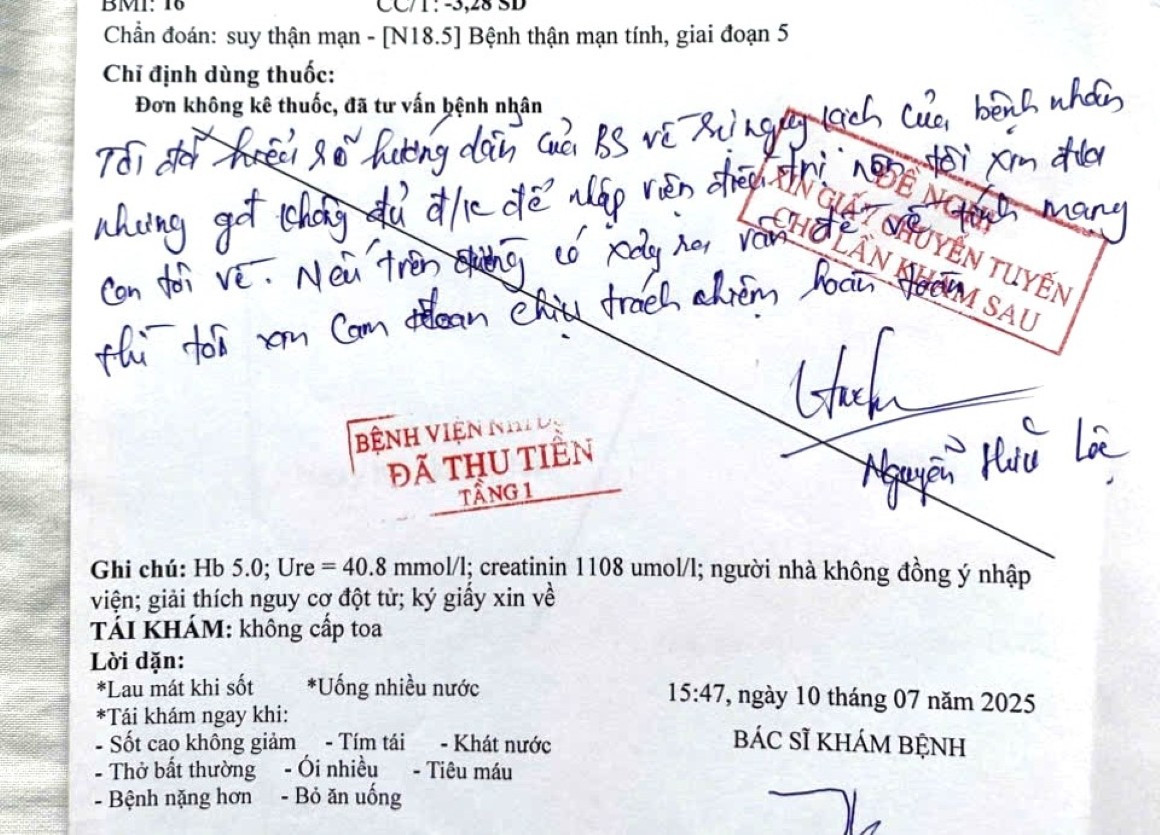 BMI: 16 CC/T: -3,28 SD
Chẩn đoán: suy thận mạn - [N18.5] Bệnh thận mạn tính, giai đoạn 5
Chỉ định dùng thuốc:
Đơn không kê thuốc, đã tư vấn bệnh nhận
Tôi đã hiểu rõ hướng dẫn của BS về sự nguy kịch của bệnh nhân
nhưng gđ không đủ đ/k để nhập viện điều trị nên tôi xin đưa
con tôi về. Nếu trên đường có xảy ra vấn đề về tính mạng
thì tôi xin cam đoan chịu trách nhiệm hoàn toàn
ĐỀ NGHỊ
XIN GIẤY CHUYỂN TUYẾN
CHO LẦN KHÁM SAU
Nguyễn Hữu Lộc
BỆNH VIỆN NHI
ĐÃ THU TIỀN
TẦNG 1
Ghi chú: Hb 5.0; Ure = 40.8 mmol/l; creatinin 1108 umol/l; người nhà không đồng ý nhập
viện; giải thích nguy cơ đột tử; ký giấy xin về
TÁI KHÁM: không cấp toa
Lời dặn:
*Lau mát khi sốt *Uống nhiều nước
*Tái khám ngay khi:
- Sốt cao không giảm - Tím tái - Khát nước
- Thở bất thường - Ói nhiều - Tiêu máu
- Bệnh nặng hơn - Bỏ ăn uống
15:47, ngày 10 tháng 07 năm 2025
BÁC SĨ KHÁM BỆNH